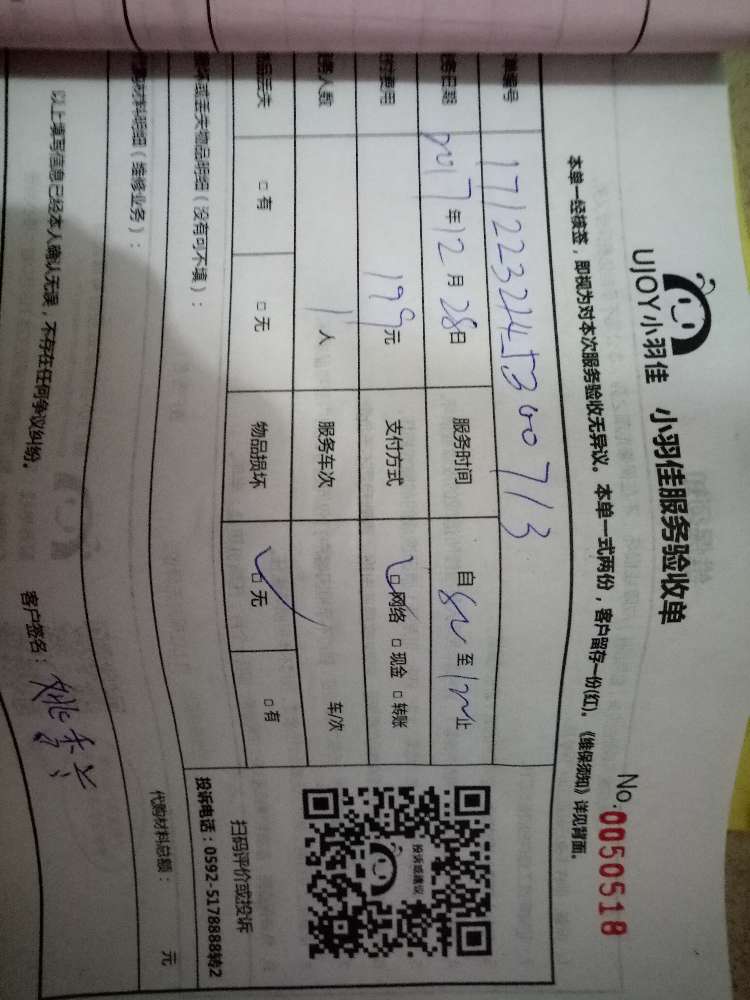 UJOY小羽佳 小羽佳服务验收单
No.0050518
本单一经核签，即视为对本次服务验收无异议。本单一式两份，客户留存一份(红)。《维保须知》详见背面。
编号 17122324530071 3
日期 2017年12月28日 服务时间 自 至 12 止
费用 199元 支付方式 ☑网络 □现金 □转账
人数 1人 服务车次 车/次
物品丢失 □有 □无 物品损坏 ☑无 □有
损坏或丢失物品明细（没有可不填）：
投诉或建议
扫码评价或投诉
投诉电话：0592-5178888转2
代购材料明细（维修业务）：
代购材料总额： 元
以上填写信息已经本人确认无误，不存在任何争议纠纷。
客户签名：